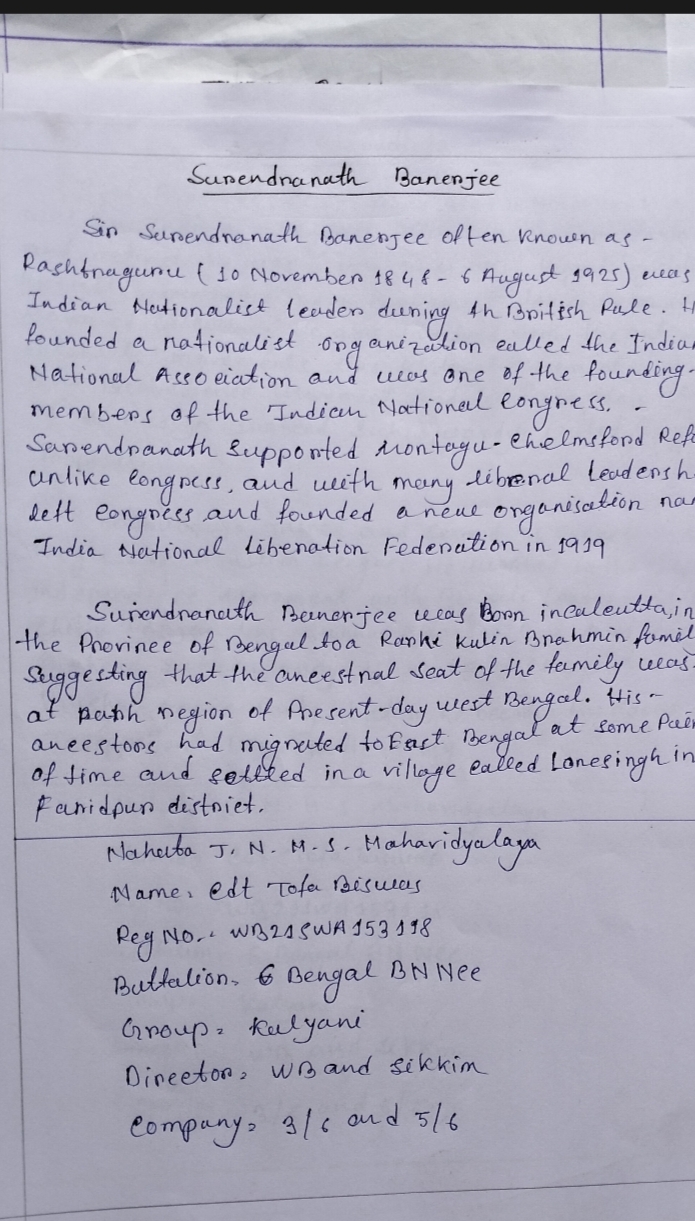 Surendranath Banerjee
Sir Surendranath Banerjee often known as -
Rashtraguru (10 November 1848 - 6 August 1925) was
Indian Nationalist leader during th British Rule. H
founded a nationalist organization called the India
National Association and was one of the founding-
members of the Indian National Congress. -
Surendranath Supported Montagu-Chelmsford Ref
unlike Congress, and with many liberal leadersh
left Congress and founded a new organisation na
India National Liberation Federation in 1919
Surendranath Banerjee was Born incalcutta, in
the Province of Bengal to a Rarhi Kulin Brahmin famil
Suggesting that the ancestral seat of the family was.
at region of Present-day West Bengal. His -
ancestors had migrated to East Bengal at some
of time and settled in a village called Lonesingh in
Faridpur district.
Nahata J. N. M. S. Mahavidyalaya
Name: Cdt Tofa Biswas
Reg No.: WB21SWA153118
Battalion: 6 Bengal BN Ncc
Group: Kalyani
Director: WB and Sikkim
Company: 3/6 and 5/6